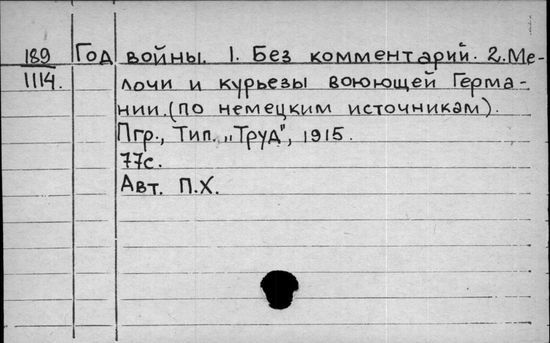 189 Год войны. 1. Без комментарий. 2. Ме-
1114. лочи и курьезы воюющей Герма-
нии. (по немецким источникам).
Пгр., Тип. „Труд", 1915.
77с.
Авт. П.Х.